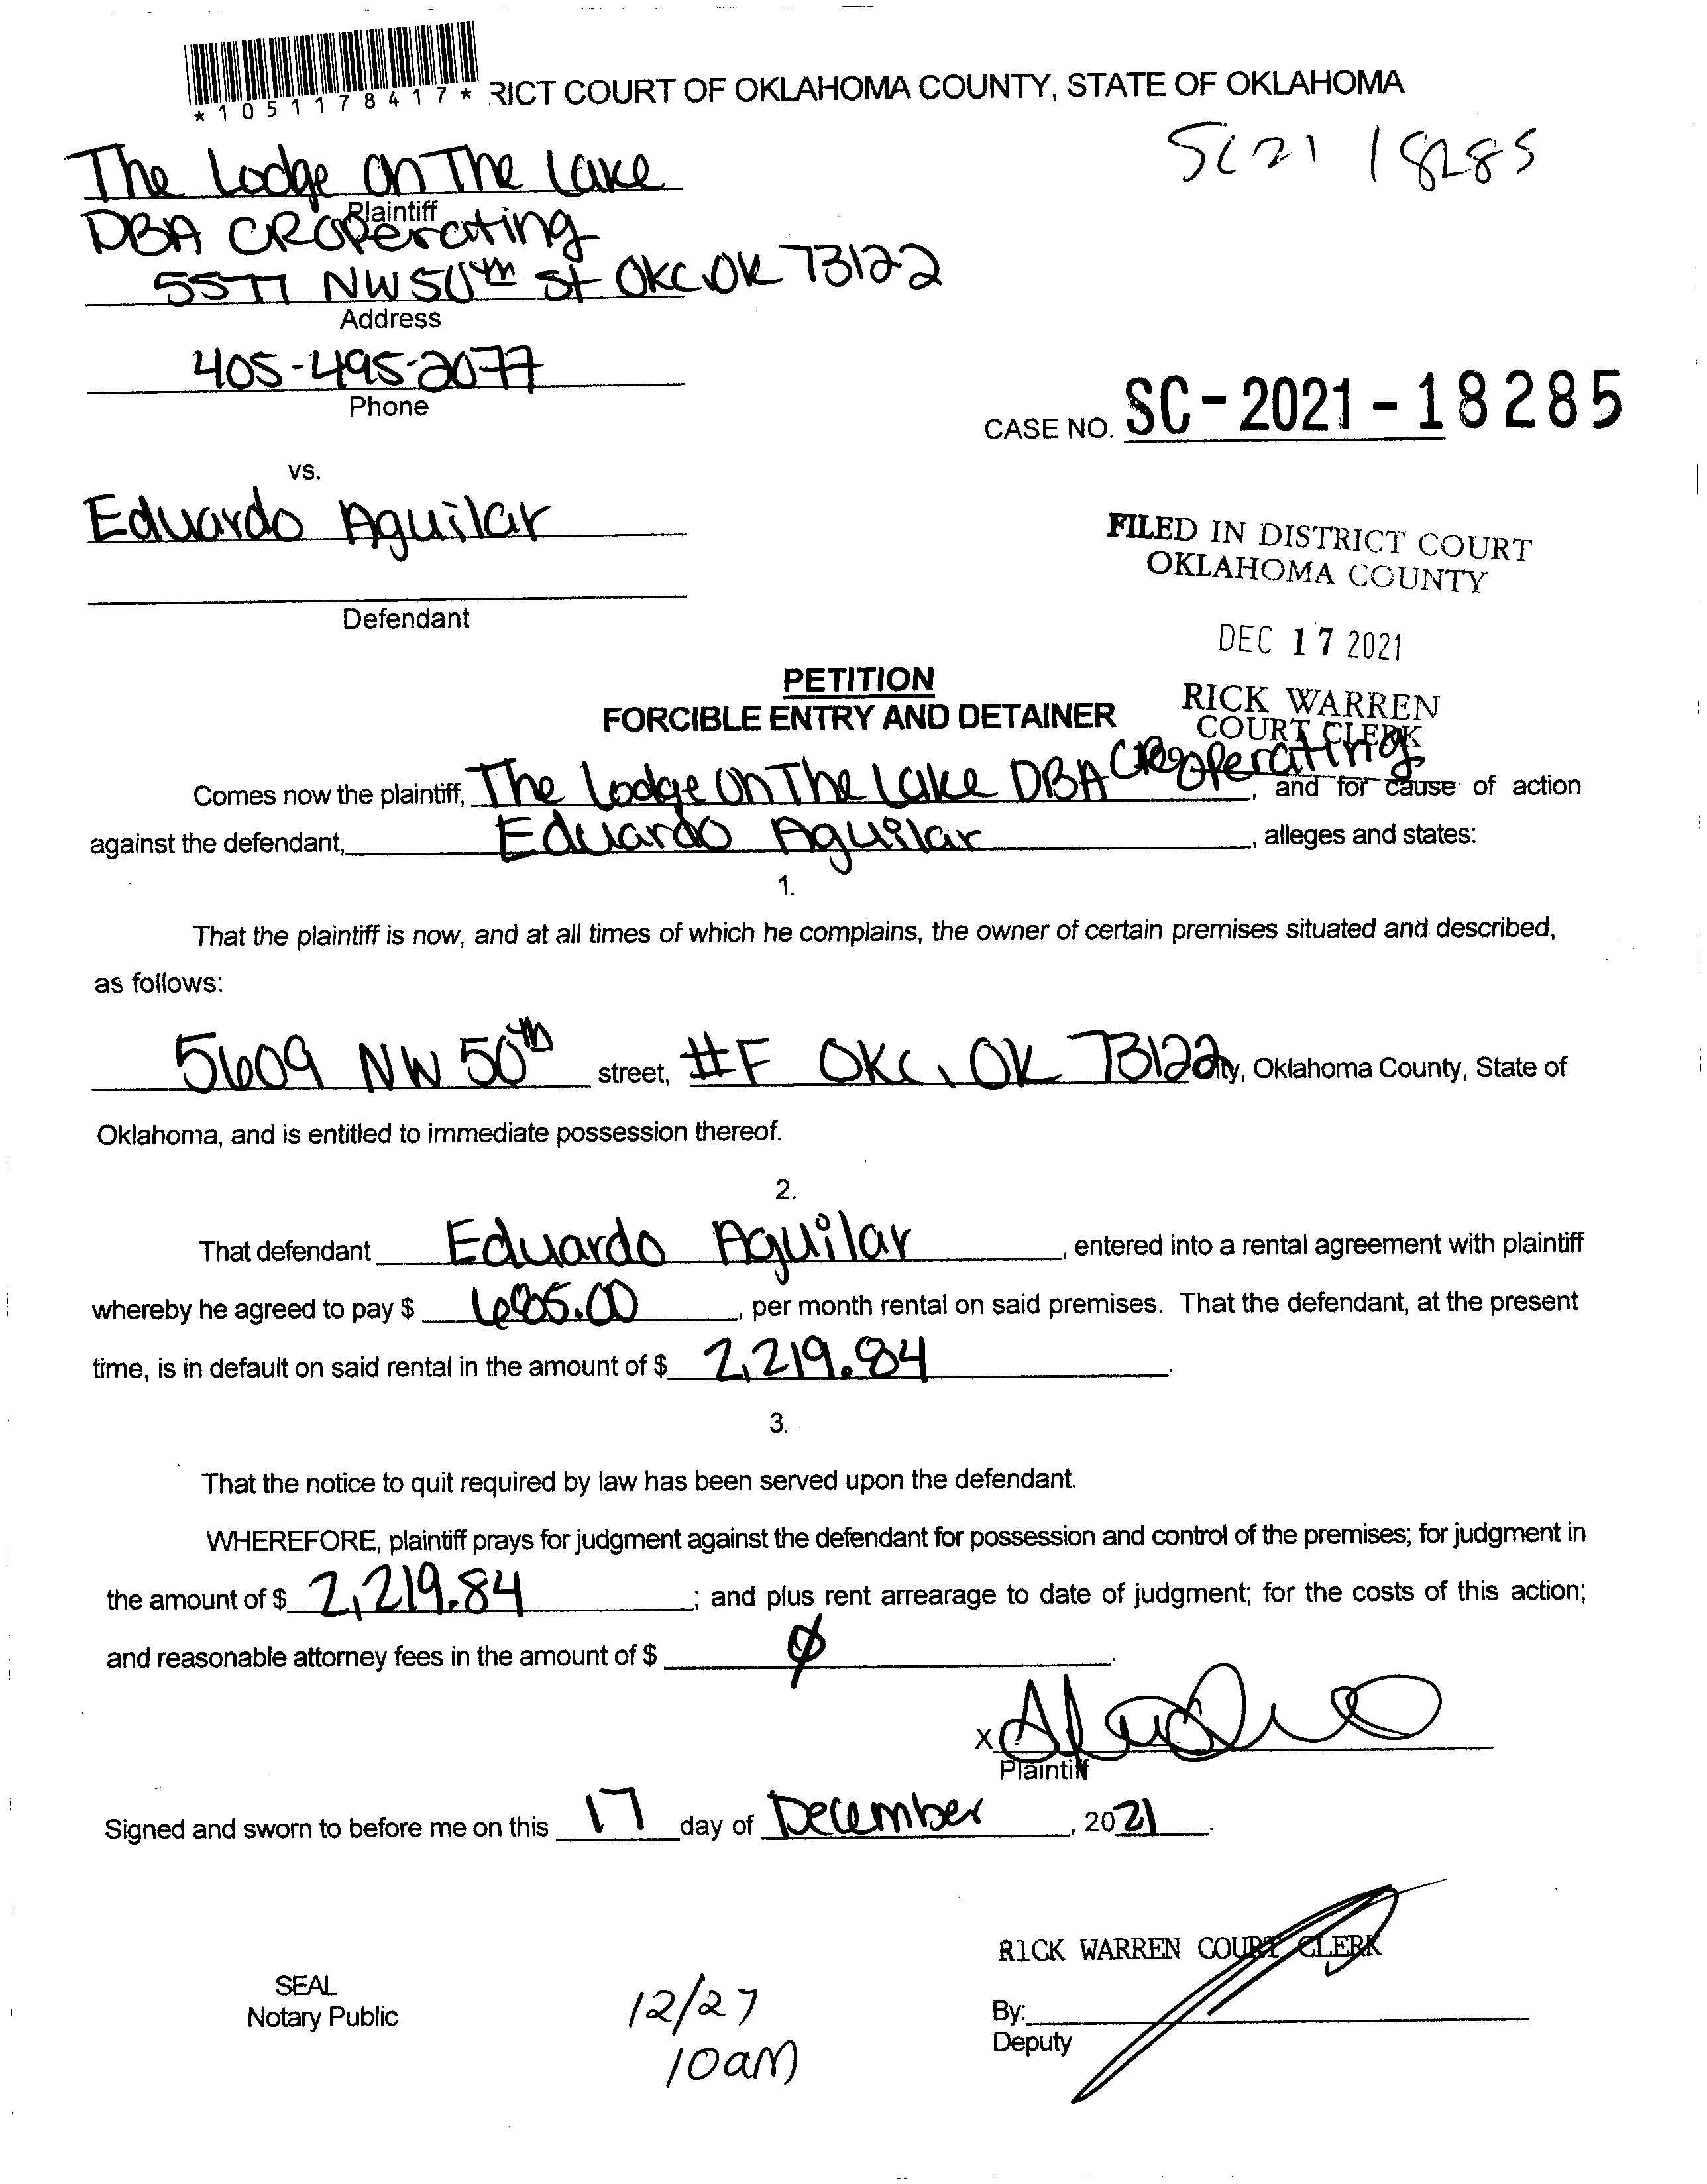 *1051178417*
RICT COURT OF OKLAHOMA COUNTY, STATE OF OKLAHOMA
SC21 18285
The Lodge On The Lake
Plaintiff
DBA CROperating
5577 NW 50th St OKC, OK 73122
Address
405-495-2077
Phone
CASE NO. SC-2021-18285
vs.
Eduardo Aguilar
Defendant
FILED IN DISTRICT COURT
OKLAHOMA COUNTY
DEC 17 2021
RICK WARREN
COURT CLERK
PETITION
FORCIBLE ENTRY AND DETAINER
Comes now the plaintiff, The Lodge On The Lake DBA CROperating, and for cause of action
against the defendant, Eduardo Aguilar, alleges and states:
1.
That the plaintiff is now, and at all times of which he complains, the owner of certain premises situated and described,
as follows:
5609 NW 50th street, #F OKC, OK 73122 City, Oklahoma County, State of
Oklahoma, and is entitled to immediate possession thereof.
2.
That defendant Eduardo Aguilar, entered into a rental agreement with plaintiff
whereby he agreed to pay $ , per month rental on said premises. That the defendant, at the present
time, is in default on said rental in the amount of $ 2,219.84.
3.
That the notice to quit required by law has been served upon the defendant.
WHEREFORE, plaintiff prays for judgment against the defendant for possession and control of the premises; for judgment in
the amount of $ 2,219.84; and plus rent arrearage to date of judgment; for the costs of this action;
and reasonable attorney fees in the amount of $ Ø.
X
Plaintiff
Signed and sworn to before me on this 17 day of December, 2021.
RICK WARREN COURT CLERK
SEAL
Notary Public
12/27
10am
By:
Deputy